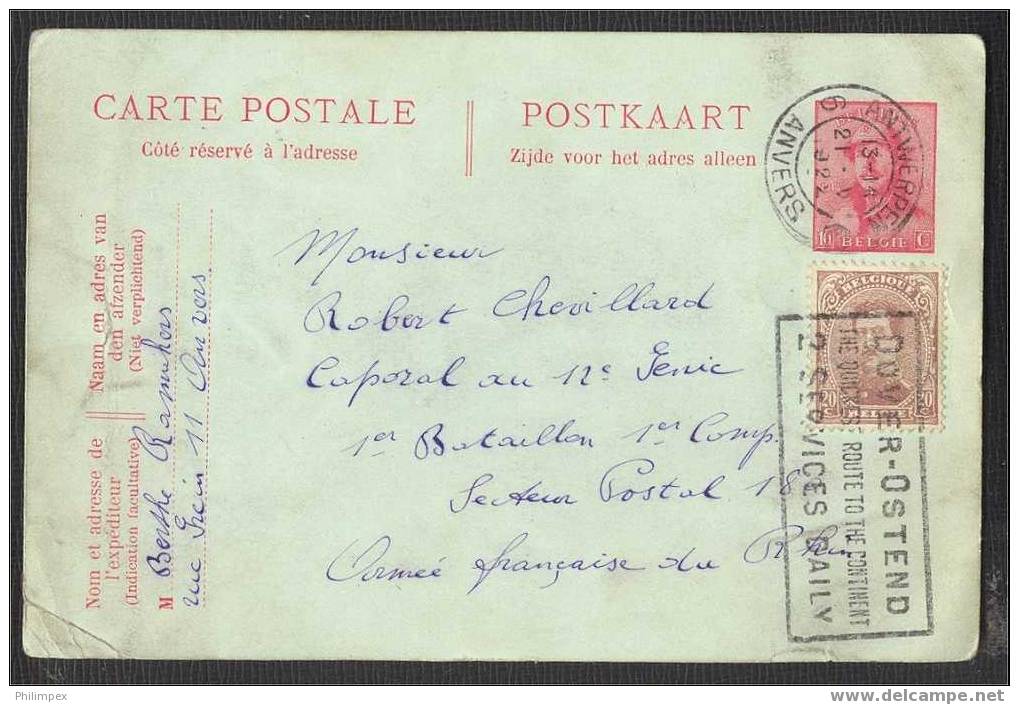 CARTE POSTALE
Côté réservé à l'adresse
POSTKAART
Zijde voor het adres alleen
ANTWERPEN
6 ANVERS
13-14
21
922
10 BELGIE C
BELGIQUE
20 20
BELGIË
DOVER-OSTEND
THE ROUTE TO THE CONTINENT
SERVICES DAILY
Monsieur
Robert Chevillard
Caporal au 12e Genie
1er Bataillon 1er Comp.
Secteur Postal
Armée française du Rhin
Naam en adres van
den afzender
(Niet verplichtend)
Nom et adresse de
l'expéditeur
(Indication facultative)
M Berthe
rue 11 Anvers.
Philimpex
www.delcampe.net